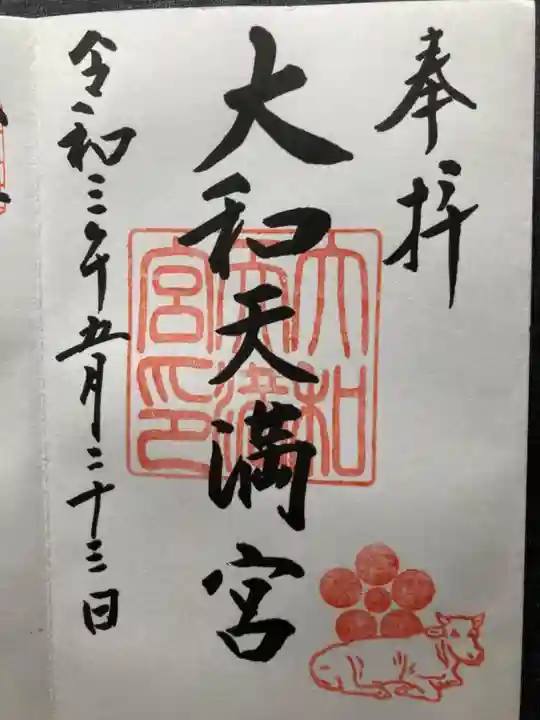 奉拝
大和天満宮
大和天満宮印
令和三年五月二十三日